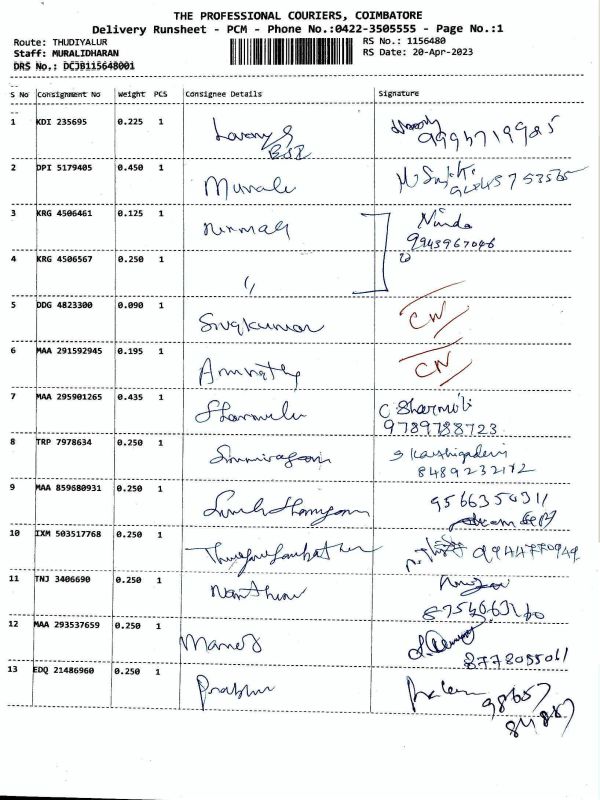 THE PROFESSIONAL COURIERS, COIMBATORE
Delivery Runsheet - PCM - Phone No.:0422-3505555 - Page No.:1
Route: THUDIYALUR RS No.: 1156480
Staff: MURALIDHARAN RS Date: 20-Apr-2023
DRS No.: DCJB115648001
S No Consignment No Weight PCS Consignee Details Signature
1 KDI 235695 0.225 1
2 DPI 5179405 0.450 1 Murali
3 KRG 4506461 0.125 1 Nirmal
9943967046
4 KRG 4506567 0.250 1 "
5 DDG 4823300 0.090 1 Sivakumar CN
6 MAA 291592945 0.195 1 CN
7 MAA 295901265 0.435 1 Sharmila C Sharmili
9789788723
8 TRP 7978634 0.250 1
8489232172
9 MAA 859680931 0.250 1 9566350311
10 IXM 503517768 0.250 1 9944770949
11 TNJ 3406690 0.250 1
12 MAA 293537659 0.250 1 Manoj
8778055061
13 EDQ 21486960 0.250 1 Prabhu